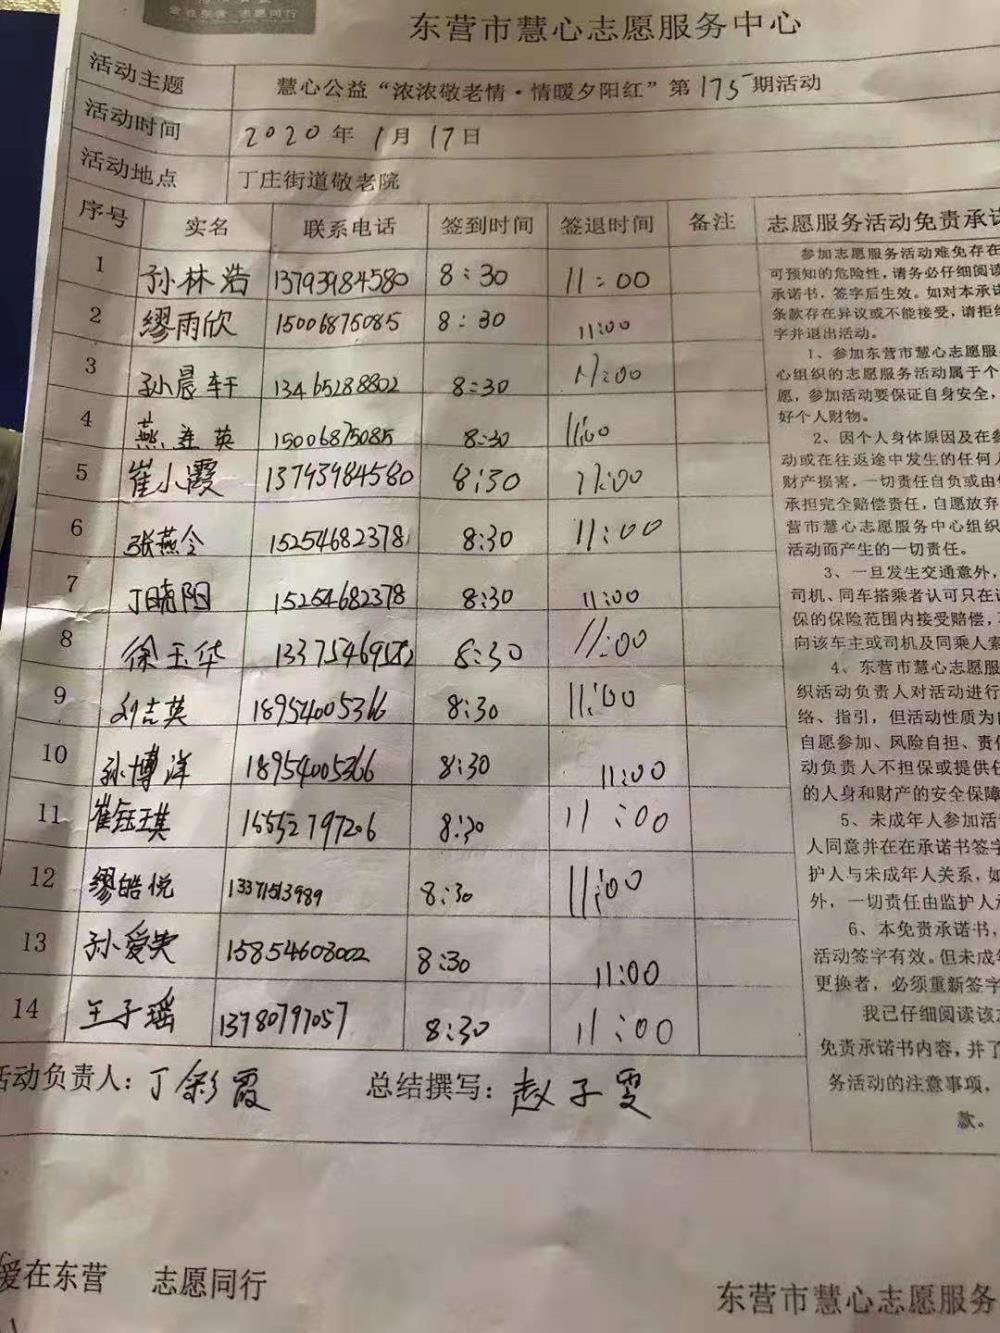 爱在东营 志愿同行
东营市慧心志愿服务中心
活动主题 慧心公益“浓浓敬老情·情暖夕阳红”第175期活动
活动时间 2020年1月17日
活动地点 丁庄街道敬老院
序号 实名 联系电话 签到时间 签退时间 备注
1 孙林浩 13793984580 8:30 11:00
2 缪雨欣 15006875085 8:30 11:00
3 孙晨轩 13465288802 8:30 11:00
4 燕连英 15006875085 8:30 11:00
5 崔小霞 13793984580 8:30 11:00
6 张燕令 15254682378 8:30 11:00
7 丁晓阳 15254682378 8:30 11:00
8 徐玉华 8:30 11:00
9 刘吉英 18954005366 8:30 11:00
10 孙博洋 18954005366 8:30 11:00
11 崔钰琪 15552797206 8:30 11:00
12 缪皓悦 13371513989 8:30 11:00
13 孙爱英 15854603002 8:30 11:00
14 王子瑶 13780797057 8:30 11:00
活动负责人：丁彩霞 总结撰写：赵子雯
志愿服务活动免责承诺
参加志愿服务活动难免存在
可预知的危险性，请务必仔细阅读
承诺书，签字后生效。如对本承诺
条款存在异议或不能接受，请拒绝
字并退出活动。
1、参加东营市慧心志愿服
心组织的志愿服务活动属于个
愿，参加活动要保证自身安全，
好个人财物。
2、因个人身体原因及在参
动或在往返途中发生的任何人
财产损害，一切责任自负或由
承担完全赔偿责任，自愿放弃
营市慧心志愿服务中心组织
活动而产生的一切责任。
3、一旦发生交通意外，
司机、同车搭乘者认可只在
保的保险范围内接受赔偿，
向该车主或司机及同乘人索
4、东营市慧心志愿服
织活动负责人对活动进行
络、指引，但活动性质为
自愿参加、风险自担、责任
动负责人不担保或提供任
的人身和财产的安全保障
5、未成年人参加活
人同意并在在承诺书签字
护人与未成年人关系，如
外，一切责任由监护人
6、本免责承诺书，
活动签字有效。但未成年
更换者，必须重新签字
我已仔细阅读该
免责承诺书内容，并了
务活动的注意事项，
款。
爱在东营 志愿同行
东营市慧心志愿服务